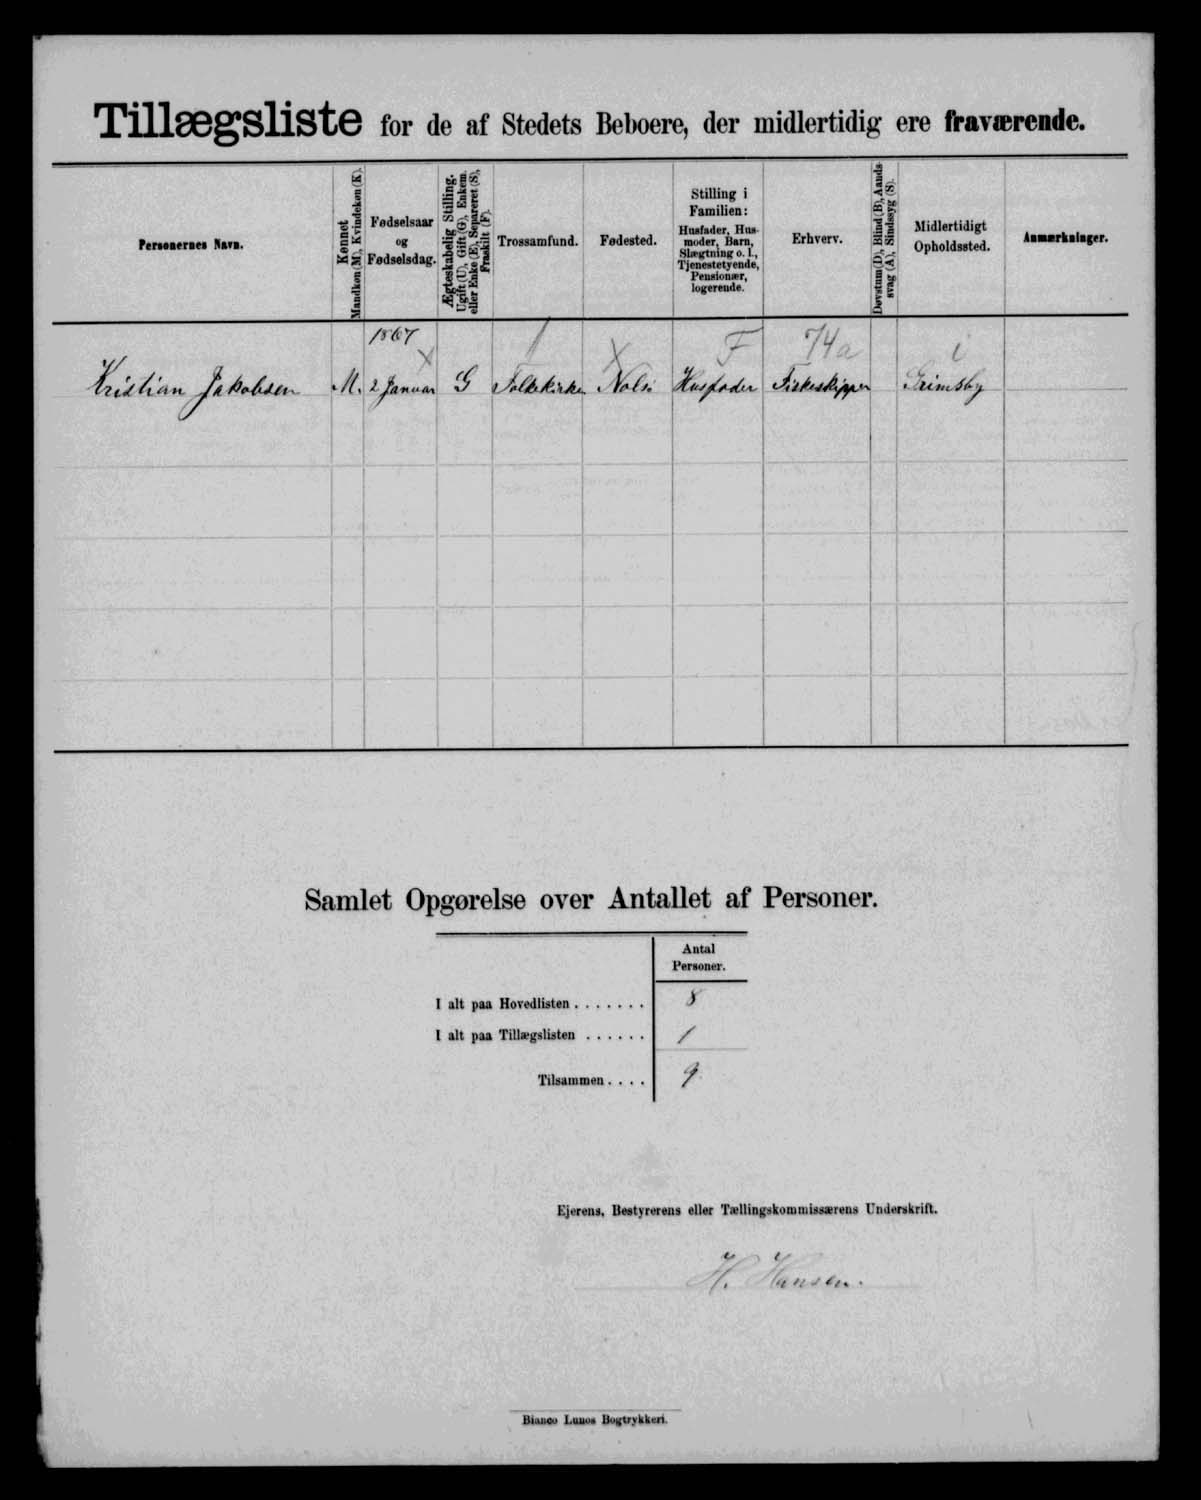 Tillægsliste for de af Stedets Beboere, der midlertidig ere fraværende.
Personernes Navn.
Kønnet
Mandkøn (M), Kvindekøn (K).
Fødselsaar
og
Fødselsdag.
Ægteskabelig Stilling.
Ugift (U), Gift (G), Enkem.
eller Enke (E), Separeret (S),
Fraskilt (F).
Trossamfund.
Fødested.
Stilling i
Familien:
Husfader, Hus-
moder, Barn,
Slægtning o. l.,
Tjenestetyende,
Pensionær,
logerende.
Erhverv.
Døvstum (D), Blind (B), Aands-
svag (A), Sindssyg (S).
Midlertidigt
Opholdssted.
Anmærkninger.
1867 F 74a i
Kristian Jakobsen M. 2 Januar G Folkekirke Nolsø Husfader Fiskeskipper Grimsby
Samlet Opgørelse over Antallet af Personer.
Antal
Personer.
I alt paa Hovedlisten . . . . . . . 8
I alt paa Tillægslisten . . . . . . 1
Tilsammen . . . . 9
Ejerens, Bestyrerens eller Tællingskommissærens Underskrift.
H. Hansen.
Bianco Lunos Bogtrykkeri.